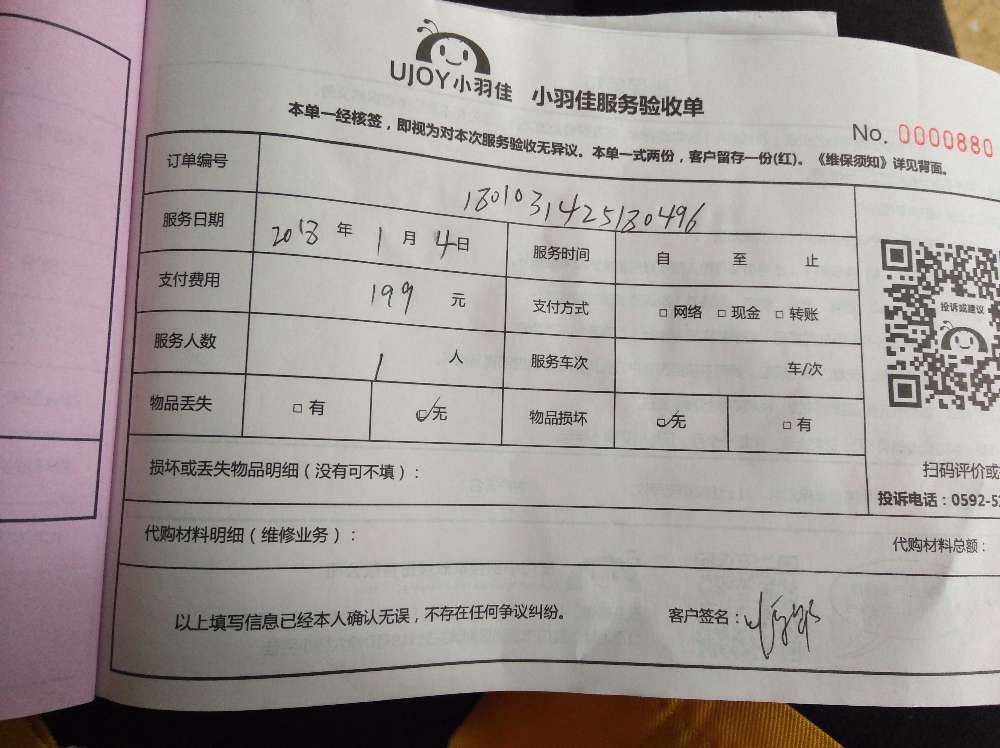 UJOY小羽佳 小羽佳服务验收单
No. 0000880
本单一经核签，即视为对本次服务验收无异议。本单一式两份，客户留存一份(红)。《维保须知》详见背面。
订单编号 1801031425180496
服务日期 2018 年 1 月 4 日 服务时间 自 至 止
支付费用 199 元 支付方式 □ 网络 □ 现金 □ 转账
投诉或建议
服务人数 1 人 服务车次 车/次
物品丢失 □ 有 ☑无 物品损坏 ☑无 □ 有
损坏或丢失物品明细（没有可不填）：
扫码评价或
投诉电话：0592-5
代购材料明细（维修业务）：
代购材料总额：
以上填写信息已经本人确认无误，不存在任何争议纠纷。 客户签名：